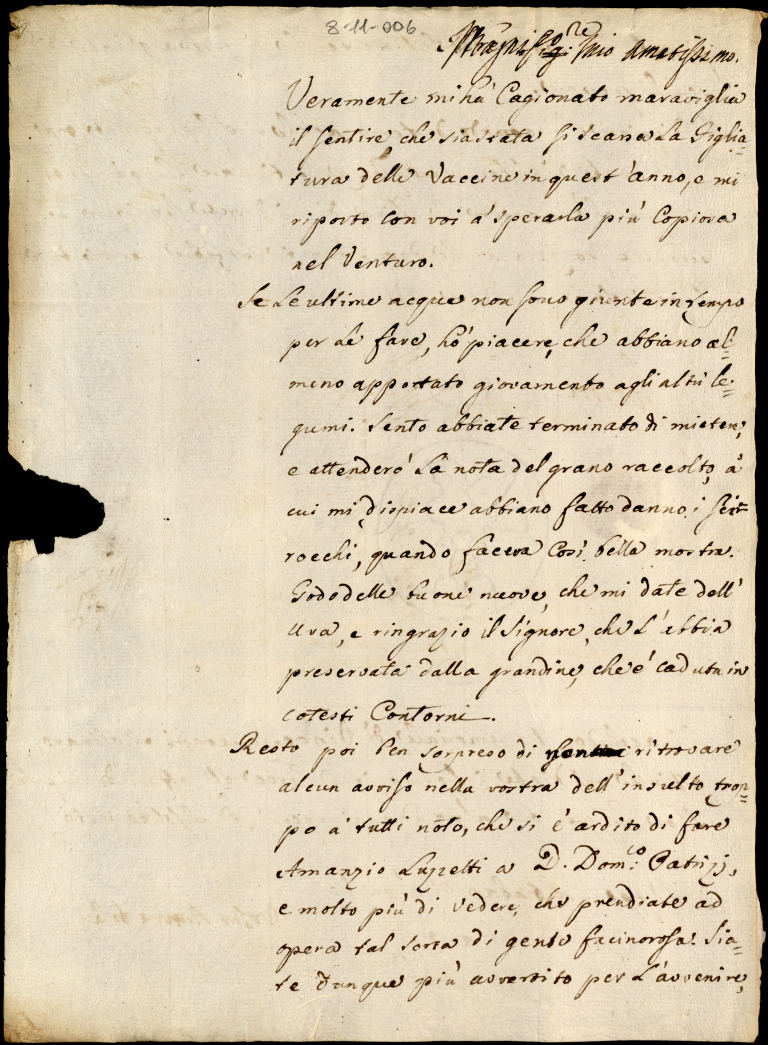 8-11-006
Sig:re mio amatissimo.
Veramente mi hà Cagionato maraviglia
il sentire, che sia stata sì scarsa La Figlia=
tura delle Vaccine in quest'anno, e mi
riporto con voi a' sperarla più Copiosa
nel Venturo.
Se Le ultime acque non sono giunte in tempo
per Le fave, hò piacere, che abbiano al=
meno apportato giovamento agli altri le=
gumi. Sento abbiate terminato di mietere,
e attenderò La nota del grano raccolto, a'
cui mi dispiace abbiano fatto danno i sci=
rocchi, quando faceva Così bella mostra.
Godo delle buone nuove, che mi date dell'
Uva, e ringrazio il Signore, che L'abbia
preservata dalla grandine, che è caduta in
cotesti Contorni.
Resto poi ben sorpreso di ritrovare
alcun avviso nella vostra dell'insulto trop=
po a' tutti noto, che si è ardito di fare
Amanzio Luzzetti a D. Dom:co Patrizj,
e molto più di vedere, che prendiate ad
opera tal sorta di gente facinorosa. Sia=
te dunque più avvertito per L'avvenire,